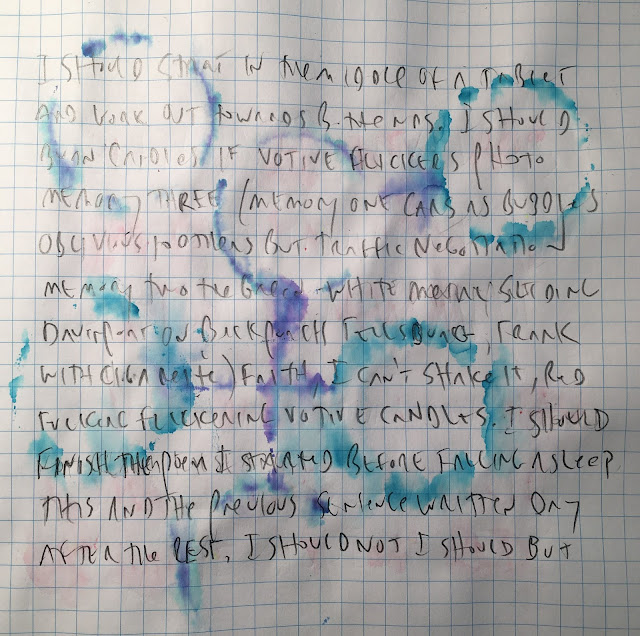 I SHOULD START IN THE MIDDLE OF A TABLET
AND WORK OUT TOWARDS BOTH ENDS. I SHOULD
BURN CANDLES IF VOTIVE FLICKERS PHOTO
MEMORY THREE (MEMORY ONE CARS AS BUBBLES
OBLIVIOUS TO OTHERS BUT TRAFFIC NEGOTIATED
MEMORY TWO THE GREEN WHITE METAL SLIDING
DAVENPORT ON BACKPORCH FEESBURG, FRANK
WITH CIGARETTE) FAITH, I CAN'T SHAKE IT, RED
FUCKING FLICKERING VOTIVE CANDLES. I SHOULD
FINISH THE POEM I STARTED BEFORE FALLING ASLEEP
THIS AND THE PREVIOUS SENTENCE WRITTEN DAY
AFTER THE REST, I SHOULD NOT I SHOULD BUT